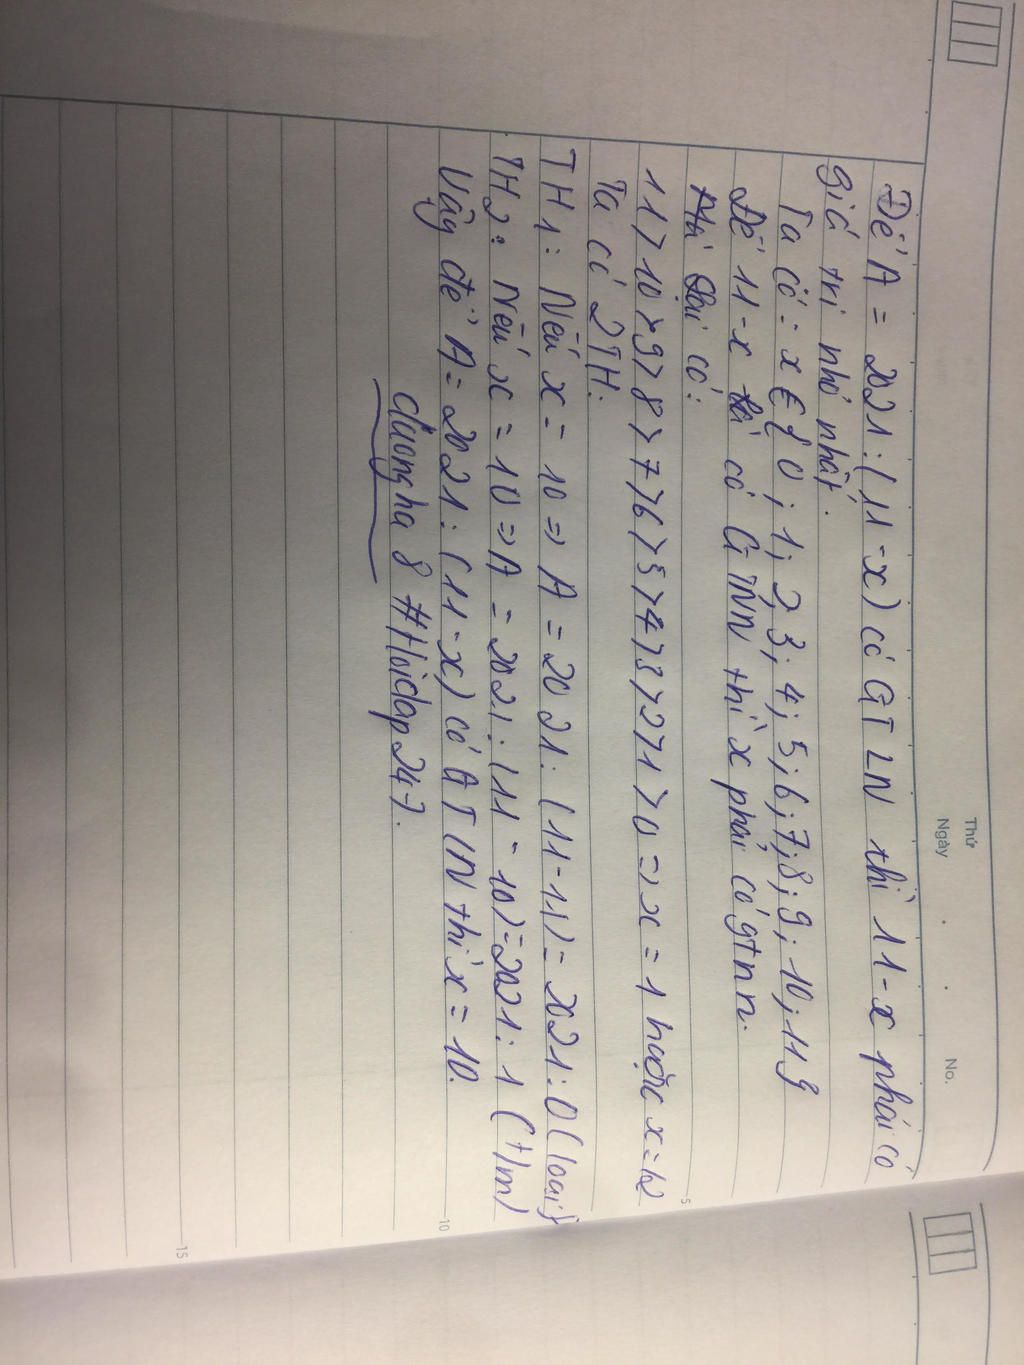 Thứ
Ngày . . No.
Để A = 2021 : (11 - x) có GTLN thì 11 - x phải có
giá trị nhỏ nhất.
Ta có : x € { 0 ; 1 ; 2 ; 3 ; 4 ; 5 ; 6 ; 7 ; 8 ; 9 ; 10 ; 11 }
Để 11 - x có GTNN thì x phải có gtnn.
có :
11 > 10 > 9 > 8 > 7 > 6 > 5 > 4 > 3 > 2 > 1 > 0 => x = 1 hoặc x = 10
Ta có 2TH:
TH1: Nếu x = 10 => A = 2021 : (11 - 11) = 2021 : 0 (loại)
TH2: Nếu x = 10 => A = 2021 : (11 - 10) = 2021 : 1 (t/m)
Vậy để A = 2021 : (11 - x) có GTLN thì x = 10.
duongha8 #Hoidap247.
5
10
15